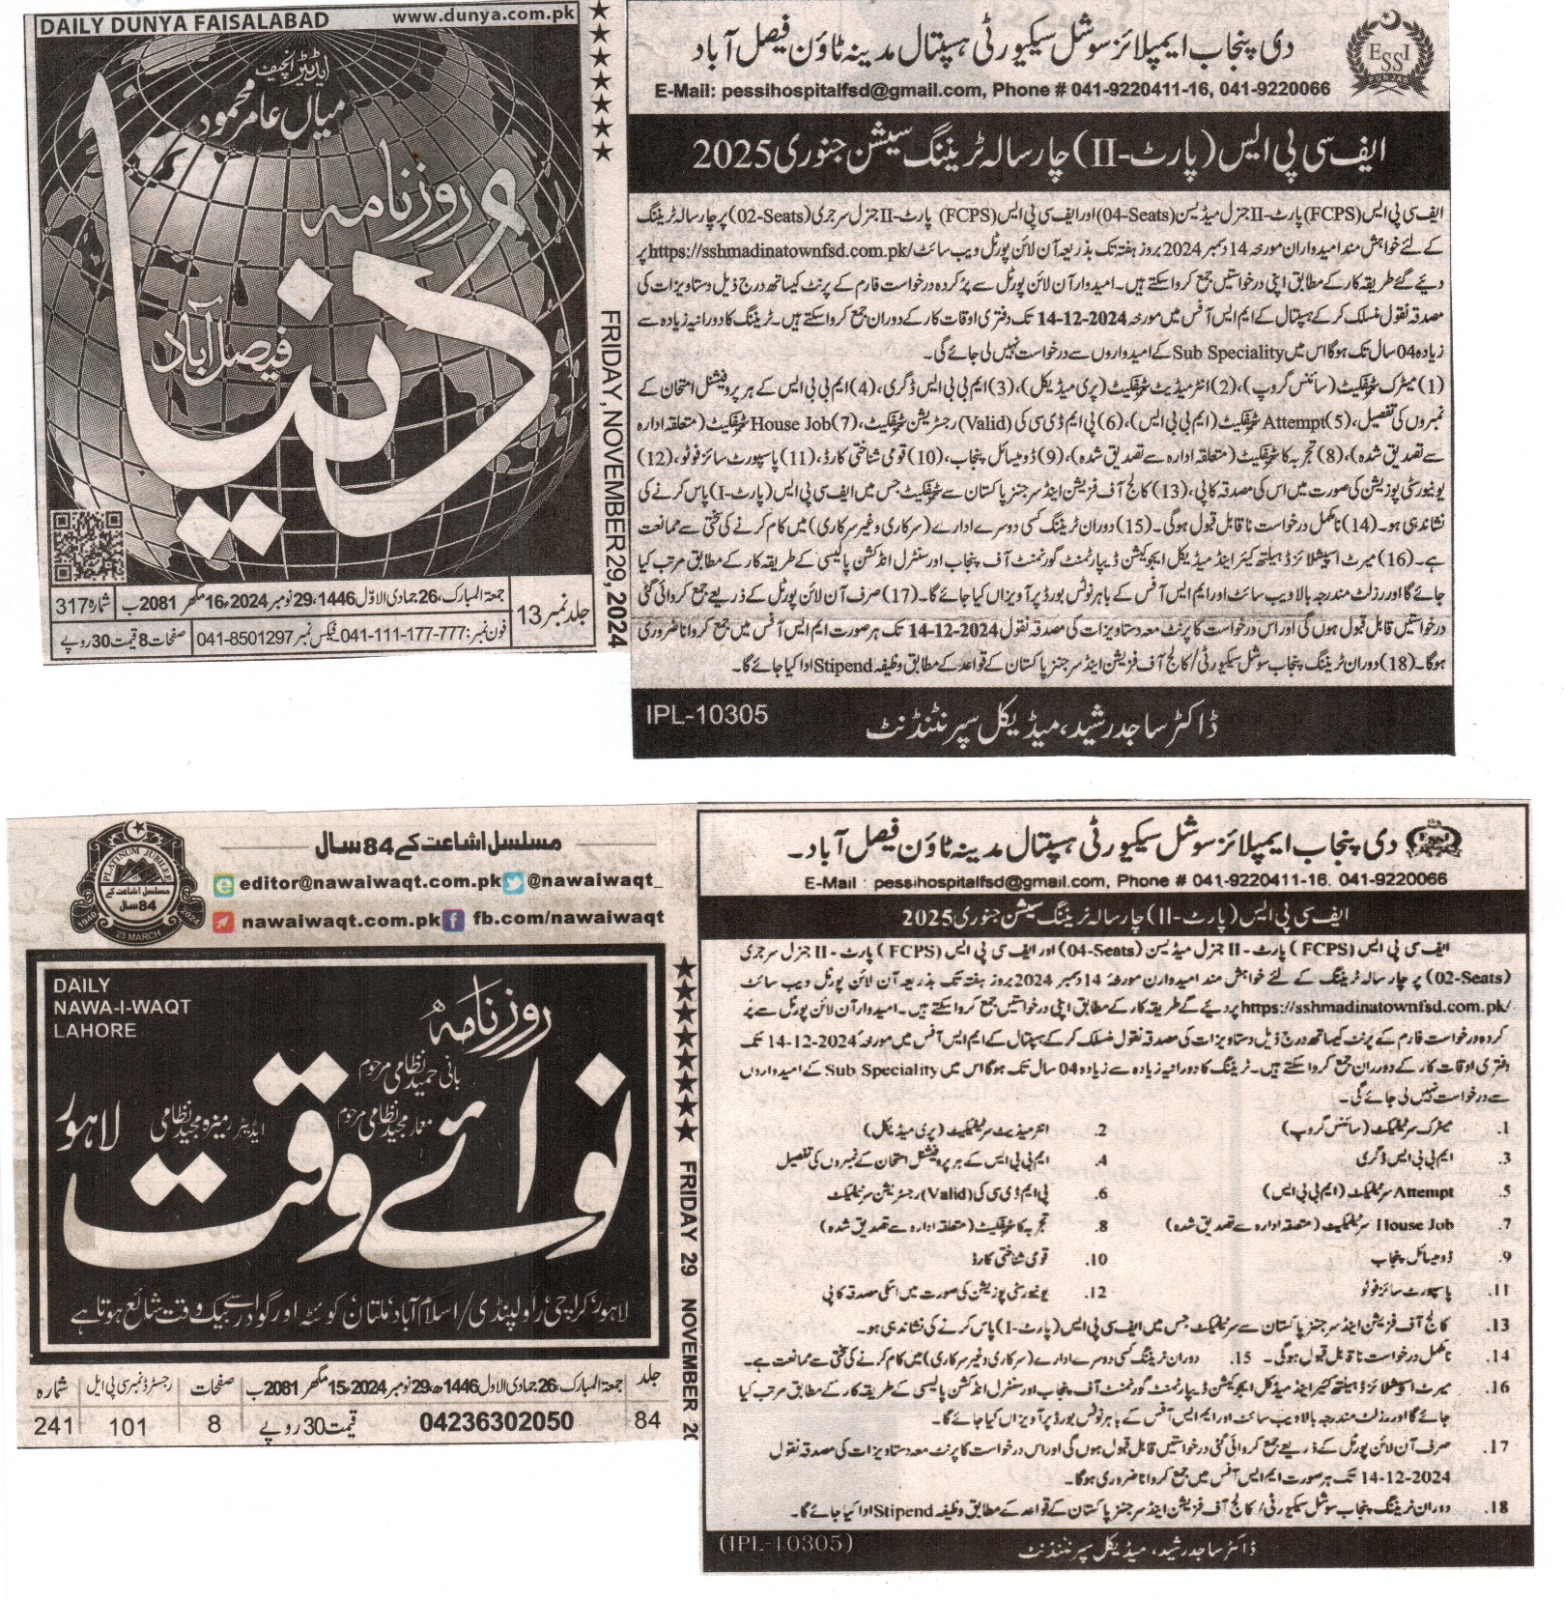 DAILY DUNYA FAISALABAD
www.dunya.com.pk
ایڈیٹر انچیف
میاں عامر محمود
روزنامہ
دُنیا
فیصل آباد
جلد نمبر 13
جمعۃ المبارک، 26 جمادی الاوّل 1446، 29 نومبر 2024، 16 مگھر 2081 ب
شمارہ 317
فون نمبر: 041-111-177-777، فیکس نمبر 041-8501297
صفحات 8 قیمت 30 روپے
FRIDAY, NOVEMBER 29, 2024
دی پنجاب ایمپلائز سوشل سیکیورٹی ہسپتال مدینہ ٹاؤن فیصل آباد
ESSI
PUNJAB
E-Mail: pessihospitalfsd@gmail.com, Phone # 041-9220411-16, 041-9220066
ایف سی پی ایس (پارٹ-II) چار سالہ ٹریننگ سیشن جنوری 2025
ایف سی پی ایس (FCPS) پارٹ-II جنرل میڈیسن (04-Seats) اور ایف سی پی ایس (FCPS) پارٹ-II جنرل سرجری (02-Seats) پر چار سالہ ٹریننگ
کے لئے خواہش مند امیدواران مورخہ 14 دسمبر 2024 بروز ہفتہ تک بذریعہ آن لائن پورٹل ویب سائٹ https://sshmadinatownfsd.com.pk/ پر
دیئے گئے طریقہ کار کے مطابق اپنی درخواستیں جمع کروا سکتے ہیں۔ امیدوار آن لائن پورٹل سے پر کردہ درخواست فارم کے پرنٹ کیساتھ درج ذیل دستاویزات کی
مصدقہ نقول منسلک کر کے ہسپتال کے ایم ایس آفس میں مورخہ 14-12-2024 تک دفتری اوقات کار کے دوران جمع کروا سکتے ہیں۔ ٹریننگ کا دورانیہ زیادہ سے
زیادہ 04 سال تک ہوگا اس میں Sub Speciality کے امیدواروں سے درخواست نہیں لی جائے گی۔
(1) میٹرک سرٹیفکیٹ (سائنس گروپ)، (2) انٹرمیڈیٹ سرٹیفکیٹ (پری میڈیکل)، (3) ایم بی بی ایس ڈگری، (4) ایم بی بی ایس کے ہر پروفیشنل امتحان کے
نمبروں کی تفصیل، (5) Attempt سرٹیفکیٹ (ایم بی بی ایس)، (6) پی ایم ڈی سی کی (Valid) رجسٹریشن سرٹیفکیٹ، (7) House Job سرٹیفکیٹ (متعلقہ ادارہ
سے تصدیق شدہ)، (8) تجربہ کا سرٹیفکیٹ (متعلقہ ادارہ سے تصدیق شدہ)، (9) ڈومیسائل پنجاب، (10) قومی شناختی کارڈ، (11) پاسپورٹ سائز فوٹو، (12)
یونیورسٹی پوزیشن کی صورت میں اس کی مصدقہ کاپی، (13) کالج آف فزیشن اینڈ سرجنز پاکستان سے سرٹیفکیٹ جس میں ایف سی پی ایس (پارٹ-I) پاس کرنے کی
نشاندہی ہو۔ (14) نامکمل درخواست ناقابل قبول ہوگی۔ (15) دوران ٹریننگ کسی دوسرے ادارے (سرکاری وغیر سرکاری) میں کام کرنے کی سختی سے ممانعت
ہے۔ (16) میرٹ اسپیشلائزڈ ہیلتھ کیئر اینڈ میڈیکل ایجوکیشن ڈیپارٹمنٹ گورنمنٹ آف پنجاب اور سنٹرل انڈکشن پالیسی کے طریقہ کار کے مطابق مرتب کیا
جائے گا اور رزلٹ مندرجہ بالا ویب سائٹ اور ایم ایس آفس کے باہر نوٹس بورڈ پر آویزاں کیا جائے گا۔ (17) صرف آن لائن پورٹل کے ذریعے جمع کروائی گئی
درخواستیں قابل قبول ہوں گی اور اس درخواست کا پرنٹ معہ دستاویزات کی مصدقہ نقول 14-12-2024 تک ہر صورت ایم ایس آفس میں جمع کروانا ضروری
ہوگا۔ (18) دوران ٹریننگ پنجاب سوشل سیکیورٹی/کالج آف فزیشن اینڈ سرجنز پاکستان کے قواعد کے مطابق وظیفہ Stipend ادا کیا جائے گا۔
IPL-10305
ڈاکٹر ساجد رشید، میڈیکل سپرنٹنڈنٹ
PLATINUM JUBILEE
مسلسل اشاعت کے
84 سال
1940
2024
23 MARCH
مسلسل اشاعت کے 84 سال
editor@nawaiwaqt.com.pk @nawaiwaqt_
nawaiwaqt.com.pk fb.com/nawaiwaqt
DAILY
NAWA-I-WAQT
LAHORE
روزنامہ
بانی حمید نظامی مرحوم
معمار مجید نظامی مرحوم
ایڈیٹر رمیزہ مجید نظامی
نوائے وقت
لاہور
لاہور، کراچی، راولپنڈی/اسلام آباد، ملتان، کوئٹہ اور گوادر سے بیک وقت شائع ہوتا ہے
جلد
84
جمعۃ المبارک، 26 جمادی الاول 1446ھ، 29 نومبر 2024، 15 مگھر 2081 ب
04236302050
قیمت 30 روپے
صفحات
8
رجسٹرڈ نمبر سی پی ایل
101
شمارہ
241
FRIDAY 29 NOVEMBER 20
دی پنجاب ایمپلائز سوشل سیکیورٹی ہسپتال مدینہ ٹاؤن فیصل آباد۔
E-Mail : pessihospitalfsd@gmail.com, Phone # 041-9220411-16. 041-9220066
ایف سی پی ایس (پارٹ-II) چار سالہ ٹریننگ سیشن جنوری 2025
ایف سی پی ایس (FCPS) پارٹ-II جنرل میڈیسن (04-Seats) اور ایف سی پی ایس (FCPS) پارٹ-II جنرل سرجری
(02-Seats) پر چار سالہ ٹریننگ کے لئے خواہش مند امیدوارن مورخہ 14 دسمبر 2024 بروز ہفتہ تک بذریعہ آن لائن پورٹل ویب سائٹ
https://sshmadinatownfsd.com.pk/ پر دیئے گے طریقہ کار کے مطابق اپنی درخواستیں جمع کروا سکتے ہیں۔ امیدوار آن لائن پورٹل سے پر
کردہ درخواست فارم کے پرنٹ کیساتھ درج ذیل دستاویزات کی مصدقہ نقول منسلک کر کے ہسپتال کے ایم ایس آفس میں مورخہ 14-12-2024 تک
دفتری اوقات کار کے دورران جمع کروا سکتے ہیں۔ ٹریننگ کا دورانیہ زیادہ سے زیادہ 04 سال تک ہوگا اس میں Sub Speciality کے امیدواروں
سے درخواست نہیں لی جائے گی۔
1. میٹرک سرٹیفکیٹ (سائنس گروپ) 2. انٹرمیڈیٹ سرٹیفکیٹ (پری میڈیکل)
3. ایم بی بی ایس ڈگری 4. ایم بی بی ایس کے ہر پروفیشنل امتحان کے نمبروں کی تفصیل
5. Attempt سرٹیفکیٹ (ایم بی بی ایس) 6. پی ایم ڈی سی کی (Valid) رجسٹریشن سرٹیفکیٹ
7. House Job سرٹیفکیٹ (متعلقہ ادارہ سے تصدیق شدہ) 8. تجربہ کا سرٹیفکیٹ (متعلقہ ادارہ سے تصدیق شدہ)
9. ڈومیسائل پنجاب 10. قومی شناختی کارڈ
11. پاسپورٹ سائز فوٹو 12. یونیورسٹی پوزیشن کی صورت میں اسکی مصدقہ کاپی
13. کالج آف فزیشن اینڈ سرجنز پاکستان سے سرٹیفکیٹ جس میں ایف سی پی ایس (پارٹ-I) پاس کرنے کی نشاندہی ہو۔
14. نامکمل درخواست ناقابل قبول ہوگی۔ 15. دوران ٹریننگ کسی دوسرے ادارے (سرکاری وغیر سرکاری) میں کام کرنے کی سختی سے ممانعت ہے۔
16. میرٹ اسپیشلائزڈ ہیلتھ کیئر اینڈ میڈیکل ایجوکیشن ڈیپارٹمنٹ گورنمنٹ آف پنجاب اور سنٹرل انڈکشن پالیسی کے طریقہ کار کے مطابق مرتب کیا
جائے گا اور رزلٹ مندرجہ بالا ویب سائٹ اور ایم ایس آفس کے باہر نوٹس بورڈ پر آویزاں کیا جائے گا۔
17. صرف آن لائن پورٹل کے ذریعے جمع کروائی گئی درخواستیں قابل قبول ہوں گی اور اس درخواست کا پرنٹ معہ دستاویزات کی مصدقہ نقول
14-12-2024 تک ہر صورت ایم ایس آفس میں جمع کروانا ضروری ہوگا۔
18. دوران ٹریننگ پنجاب سوشل سیکیورٹی/کالج آف فزیشن اینڈ سرجنز پاکستان کے قواعد کے مطابق وظیفہ Stipend ادا کیا جائے گا۔
(IPL-10305)
ڈاکٹر ساجد رشید، میڈیکل سپرنٹنڈنٹ